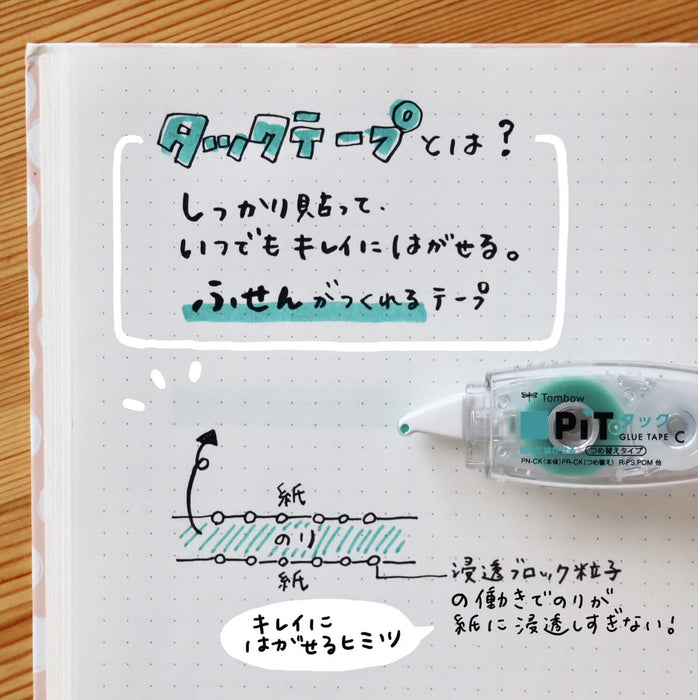 タックテープとは?
しっかり貼って、
いつでもキレイにはがせる。
ふせんがつくれるテープ
Tombow
PiTタック
GLUE TAPE C
つめ替えタイプ
PN-CK(本体)PR-CK(つめ替え) R-PS,POM 他
紙
のり
紙
浸透ブロック粒子
の働きでのりが
紙に浸透しすぎない!
キレイに
はがせるヒミツ